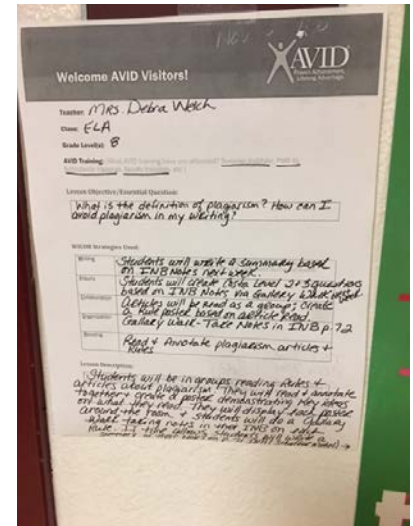 AVID
Proven Achievement.
Lifelong Advantage.
Welcome AVID Visitors!
Teacher: Mrs. Debra Welch
Class: ELA
Grade Level(s): 8
AVID Training: (What AVID training have you attended? Summer Institute, Path to
Lesson Objective/Essential Question:
What is the definition of plagiarism? How can I
avoid plagiarism in my writing?
WICOR Strategies Used:
Writing
Students will write a summary based
on INB Notes next week.
Inquiry
Students will create Costa Level 2+3 questions
based on INB Notes via Gallery Walk next
Collaboration
Articles will be read as a group; create
a Rule poster based on article read.
Organization
Gallary Walk - Take Notes in INB p. 72
Reading
Read & Annotate plagiarism articles +
Rules
Lesson Description:
Students will be in groups reading Rules +
articles about plagiarism. They will read & annotate
together & create a poster demonstrating key ideas
on what they read. They will display each poster
around the room & students will do a Gallary
Walk taking notes in their INB on each
Rule. If time allows students will write a